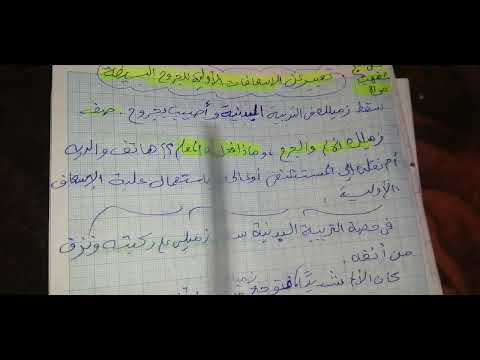 تعبير عن الإسعافات الأولية للجروح البسيطة
سقط زميلك في التربية البدنية و أصيب بجروح. صف
زميلك الألم والجرح، وماذا فعل المعلم؟؟ هاتف والديه
أم نقل إلى المستشفى أو باستعمال علبة الإسعاف
الأولية.
في حصة التربية البدنية زميلي على ركبته ونزف
من أنفه.
كان الألم شديدًا